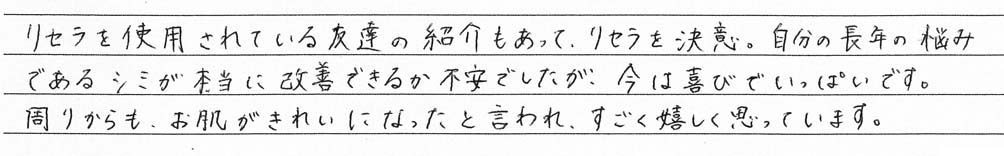 リセラを使用されている友達の紹介もあって、リセラを決意。自分の長年の悩み
であるシミが本当に改善できるか不安でしたが、今は喜びでいっぱいです。
周りからも、お肌がきれいになったと言われ、すごく嬉しく思っています。